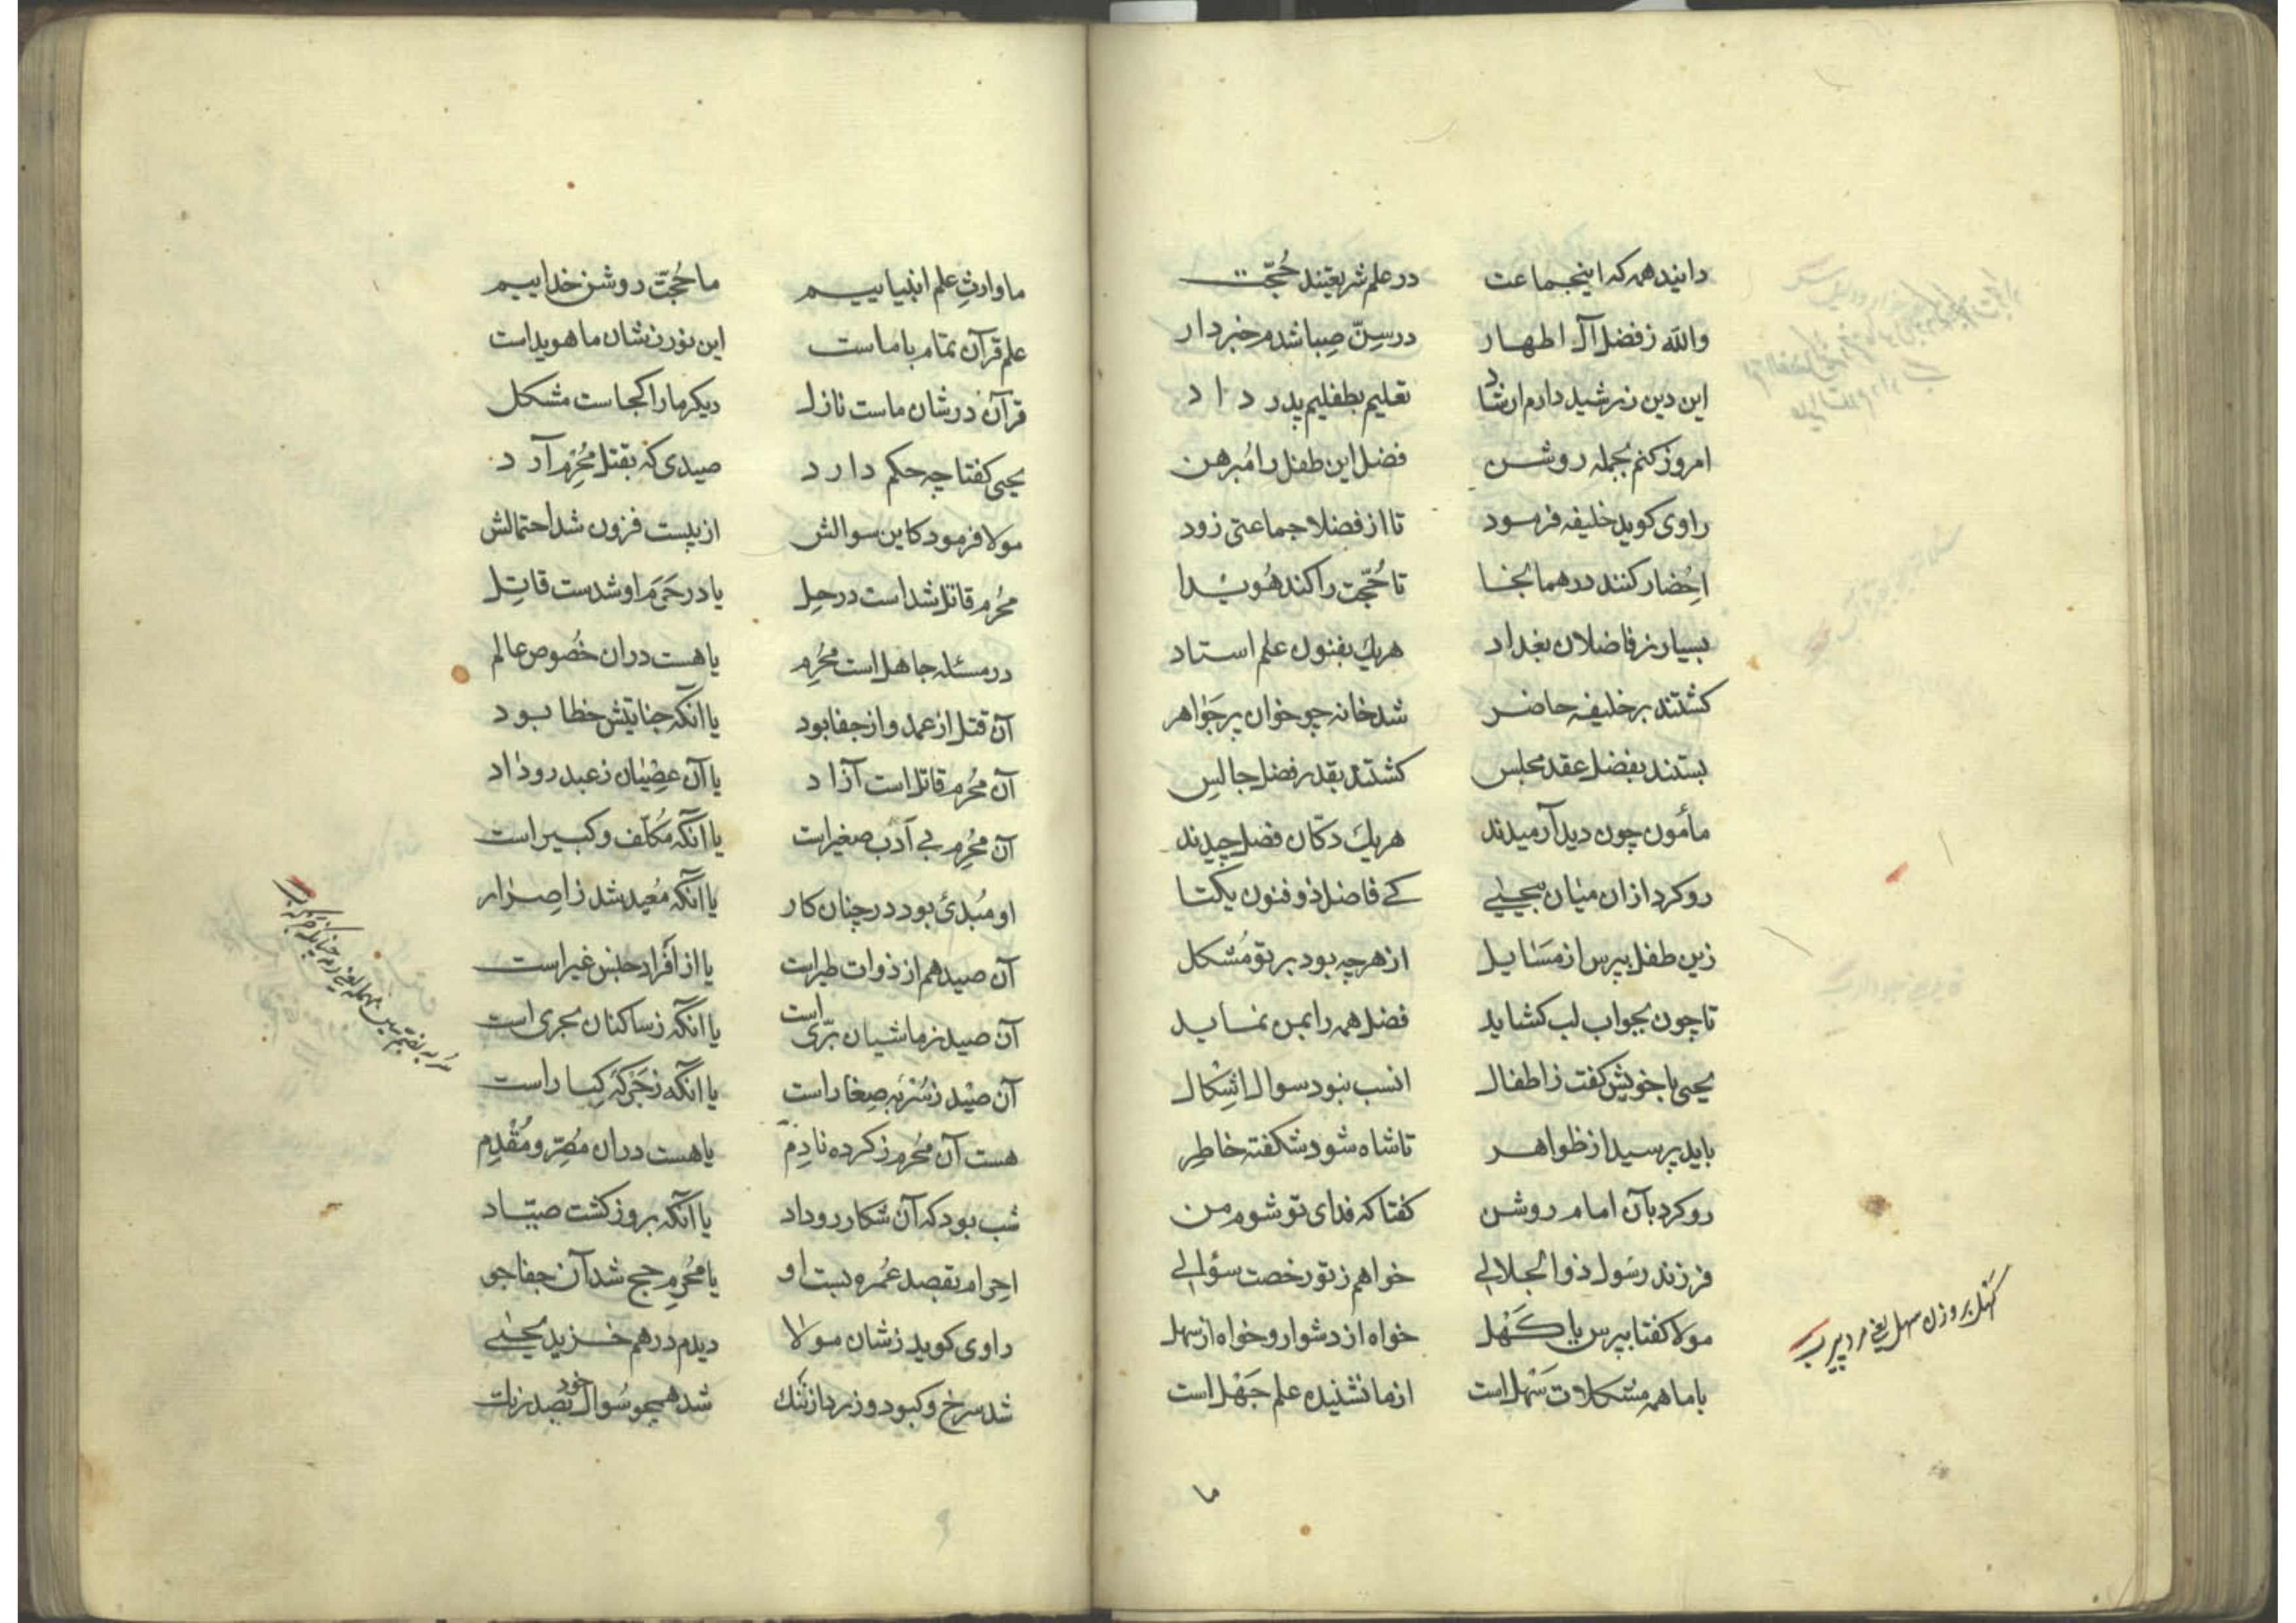 دانید همه که اینجماعت در علم شریعتند حُجّت
والله ز فضل آل اطهار در سِنّ صِبا شدم خبردار
این دین ز رشید دارم ارشاد تعلیم بطفلیم پدر داد
امروز کنم بجمله روشن فضل این طفل را مُبرهن
راوی کوید خلیفه فرمود تا از فضلا جماعتی زود
اِحضار کنند در همانجا تا حُجّت را کند هُوَیدا
بسیار ز فاضلان بغداد هریک بفنون علم استاد
کشتند بر خلیفه حاضر شد خانه چو خوان پر جَواهر
بستند بفضل عقد مجلس کشتند بقدر فضل جالِس
مأمون چون دید آرمیدند هریک دکّان فضل چیدند
رو کرد ازان میان بیحیی کے فاضل ذو فنون یکتا
زین طفل بپرس از مَسَایل از هرچه بود بر تو مُشکل
تا چون بجواب لب کشاید فضل همه را بمن نماید
یحیی با خویش کفت ز اطفال انسب نبود سوال اِشِکال
باید پرسید از ظواهر تا شاه شود شکفته خاطِر
رو کرد بآن امام روشن کفتا که فدای تو شوم من
فرزند رسُول ذو الجلالی خواهم ز تو رخصت سؤالی
مولا کفتا بپرس یا کَهْل خواه از دشوار و خواه از سهل
با ما همه مشکلات سَهل است از ما نشنیده علم جَهْل است
کَهْل بر وزن سهل یعنی مرد پیر
ما
ما وارثِ علم انبیاییم ما حُجّت روشن خداییم
علم قرآن تمام با ماست این نور ز شان ما هویداست
قرآن در شان ماست نازل دیکر ما را کجاست مشکل
یحیی کفتا چه حکم دارد صیدی که بقتل مُحرِم آرد
مولا فرمود کاین سوالش از بیست فزون شد احتمالش
مُحرِم قاتل شد است در حِل یا در حَرَم او شدست قاتِل
در مسئله جاهل است مُحرِم یا هست دران خُصوص عالم
آن قتل از عمد و از جفا بود یا آنکه جنایتش خطا بود
آن مُحرِم قاتل است آزاد یا آن عِصْیان ز عبد رو داد
آن مُحرِم بے اَدَب صغیر است یا آنکه مُکلّف و کبیر است
او مُبْدِئ بود در چنان کار یا آنکه مُعید شد ز اِصرار
آن صید هم از ذوات طیر است یا از اَفراد جنس غیر است
آن صید ز ماشیان برّی است یا آنکه ز ساکنان بحری است
آن صَیْد ز سُرْبَه صِغار است یا آنکه ز جَرکَه کِبار است
هست آن مُحرِم ز کرده نادِم یا هست دران مُصِرّ و مُقْدِم
شب بود که آن شکار رو داد یا آنکه بروز کشت صیّاد
اِحرام بقصد عُمره بست او یا مُحرِم حج شد آن جفاجو
راوی کوید ز شان مولا دیدم درهم خزید یحیی
شد سرخ و کبود و زرد از ننك شد همچو سُوال خود بصد رنك
سُربه بضم سین مهمله یعنی رمه
۹